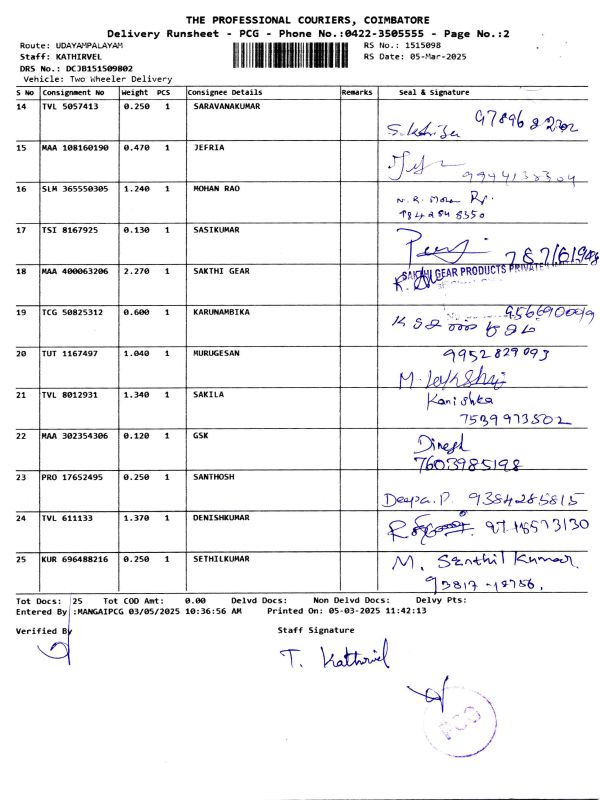 THE PROFESSIONAL COURIERS, COIMBATORE
Delivery Runsheet - PCG - Phone No.:0422-3505555 - Page No.:2
Route: UDAYAMPALAYAM RS No.: 1515098
Staff: KATHIRVEL RS Date: 05-Mar-2025
DRS No.: DCJB151509802
Vehicle: Two Wheeler Delivery
S No Consignment No Weight PCS Consignee Details Remarks Seal & Signature
14 TVL 5057413 0.250 1 SARAVANAKUMAR
15 MAA 108160190 0.470 1 JEFRIA
9994138304
16 SLM 365550305 1.240 1 MOHAN RAO
17 TSI 8167925 0.130 1 SASIKUMAR
18 MAA 400063206 2.270 1 SAKTHI GEAR
SAKTHI GEAR PRODUCTS PRIVATE
19 TCG 50825312 0.600 1 KARUNAMBIKA
20 TUT 1167497 1.040 1 MURUGESAN
9952829093
21 TVL 8012931 1.340 1 SAKILA
Kanishka
7539973502
22 MAA 302354306 0.120 1 GSK
Dinesh
7603985198
23 PRO 17652495 0.250 1 SANTHOSH
Deepa.P. 9384285815
24 TVL 611133 1.370 1 DENISHKUMAR
25 KUR 696488216 0.250 1 SETHILKUMAR
M. Senthil Kumar
Tot Docs: 25 Tot COD Amt: 0.00 Delvd Docs: Non Delvd Docs: Delvy Pts:
Entered By :MANGAIPCG 03/05/2025 10:36:56 AM Printed On: 05-03-2025 11:42:13
Verified By Staff Signature
T. Kathirvel
PCG